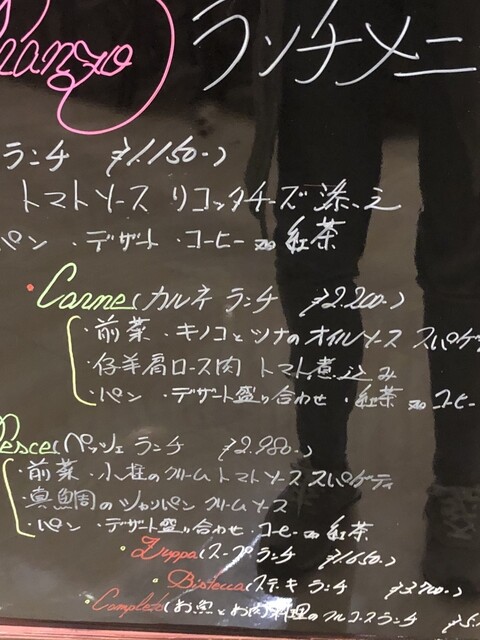 ランチメニ
ランチ ¥1.150-)
トマトソース リコッタチーズ添え
パン ・デザート ・コーヒー or 紅茶
・Carne(カルネ ランチ ¥2.200-)
・前菜 ・キノコとツナのオイルソース スパゲ
・仔羊肩ロース肉 トマト煮込み
・パン ・デザート盛り合わせ ・紅茶 or コーヒー
Pesce(ペッシェ ランチ ¥2.980-)
・前菜 ・小柱のクリームトマトソース スパゲティ
・真鯛のシャンパン クリームソース
・パン ・デザート盛り合わせ ・コーヒー or 紅茶
・Zuppa(スープランチ ¥1.650-)
・Bistecca(ステーキ ランチ
・Completo(お魚とお肉料理のフルコースランチ